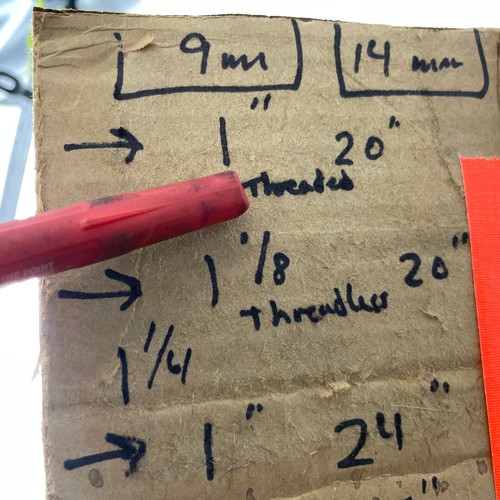 9mm 14 mm
1" 20"
Threaded
1 1/8 20"
Threadless
1 1/4
1" 24"
POINT